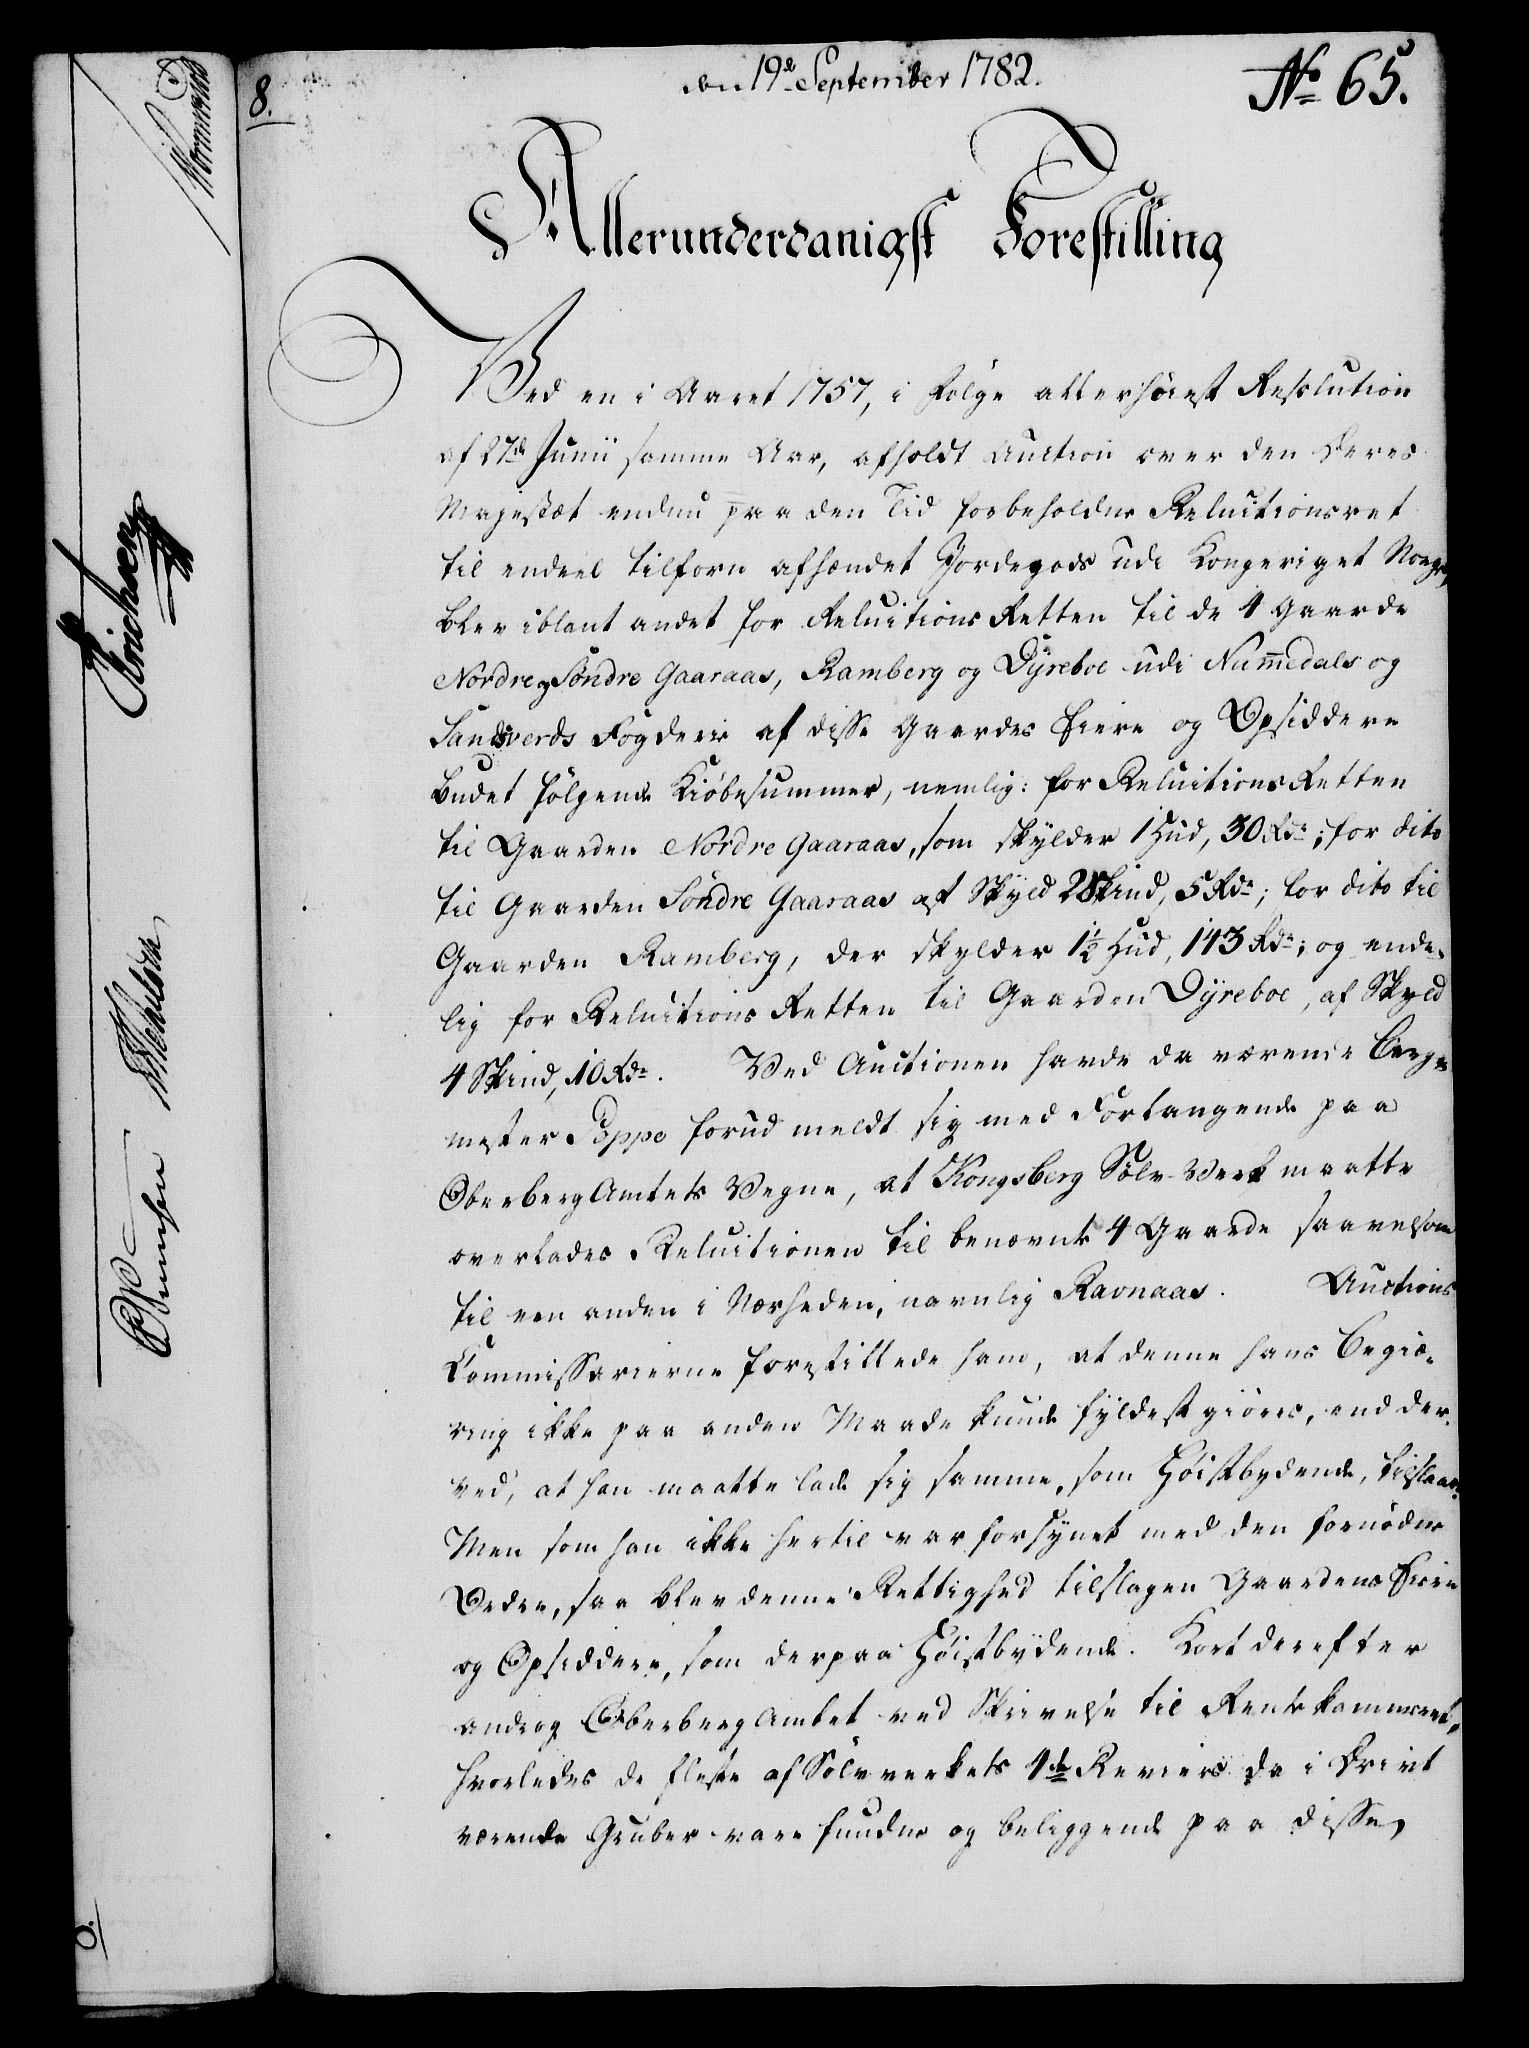 8.
den 19de September 1782.
No 65.
Allerunderdanigst Forestilling
Ved en i Aaret 1757, i Følge allerhøiest Resolution
af 27de Junii samme Aar, afholdt Auction over den Deres
Majestæt endnu paa den Tid forbeholdne Reluitionsret
til endeel tilforn afhændet Jordegods udi Kongeriget Norge,
blev iblant andet for ReluitionsRetten til de 4 Gaarde
Nordre og Søndre Gaaraas, Ramberg og Dyreboe udi Nummedals og
Sandsverds Fogderie af disse Gaardes Eiere og Opsiddere
budet følgende Kiøbesummer, nemlig: for ReluitionsRetten
til Gaarden Nordre Gaaraas, som skylder 1 Hud, 30 Rdr; for dito
til Gaarden Søndre Gaaraas af Skyld 2 Skind, 5 Rdr; for dito til
Gaarden Ramberg, der skylder 1½ Hud, 143 Rdr; og ende-
lig for Reluitions Retten til Gaarden Dyreboe, af Skyld
4 Skind, 10 Rdr. Ved Auctionen havde da værende Berg-
mester Poppe forud meldt sig med Forlangende paa
OberbergAmtets Vegne, at Kongsberg Sølv-Verk maatte
overlades Reluitionen til benævnte 4 Gaarde saavelsom
til een anden i Nærheden, navnlig Ravnaas. Auctions
Commissarierne forestillede ham, at denne hans Begiæ-
ring ikke paa anden Maade kunde fyldestgiøres, end der-
ved, at han maatte lade sig samme, som Høistbydende, tilslaae.
Men som han ikke hertil var forsynet med den fornødne
Ordre, saa blev denne Rettighed tilslagen Gaardenes Eiere
og Opsiddere, som derpaa Høistbydende. Kort derefter
androg OberbergAmtet ved Skrivelse til Rentekammeret,
hvorledes de fleste af Sølvverkets 4de Reviers da i Drivt
værende Gruber vare fundne og beliggende paa disse
Erichsen